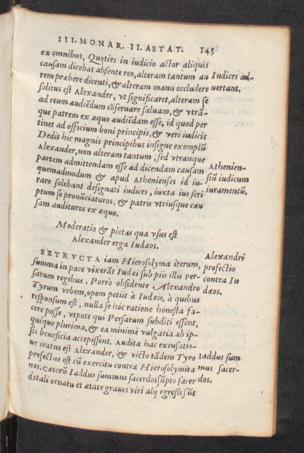 III. MONAR. II. AETAT. 145
ex omnibus, Quoties in iudicio actor aliquis
causam dicebat absente reo, alteram tantum au
rem præbere dicenti, & alteram manu occludere
solitus est Alexander, vt significaret, alteram se
ad reum audiēdum cōseruare saluam, & vtrā-
que partem ex æquo audiēdum esse, id quod per
tinet ad officium boni principis, & veri iudicis
Dedit hic magnis principibus insigne exemplū
Alexander, non alteram tantum, sed vtranque
partem admittendam esse ad dicendam causam
quemadmodum & apud Athenienses id iu-
rare solebant designati iudices, iuxta ius scri
ptum se pronūciaturos, & patris vtriusque cau
sam audituros ex æquo.
Iudices ad-
uertant.
Athenien-
siū iudicum
iuramentū.
Moderatio & pietas qua vsus est
Alexander erga Iudæos.
EXTRVCTA iam Hierosolyma iterum,
summa in pace vixerāt Iudæi sub piis illis Per-
sarum regibus, Porrò obsidente Alexandro
Tyrum vrbem, opem petiit à Iudæis, à quibus
responsum est, nulla se hoc ratione honesta fa-
cere posse, vtpote qui Persarum subditi essent,
quique plurima, & ea minimè vulgaria ab ip-
sis beneficia accepissent. Audita hac excusatio-
ne iratus est Alexander, & victo tādem Tyro
profectus est cū exercitu contra Hierosolymita
nos. Cæterū Iaddus summus sacerdos sūpto sacer
dotali ornatu et ætate graues viri alij egressi sūt
Alexandri
profectio
contra Iu
dæos.
Iaddus sum
mus sacer-
dos.